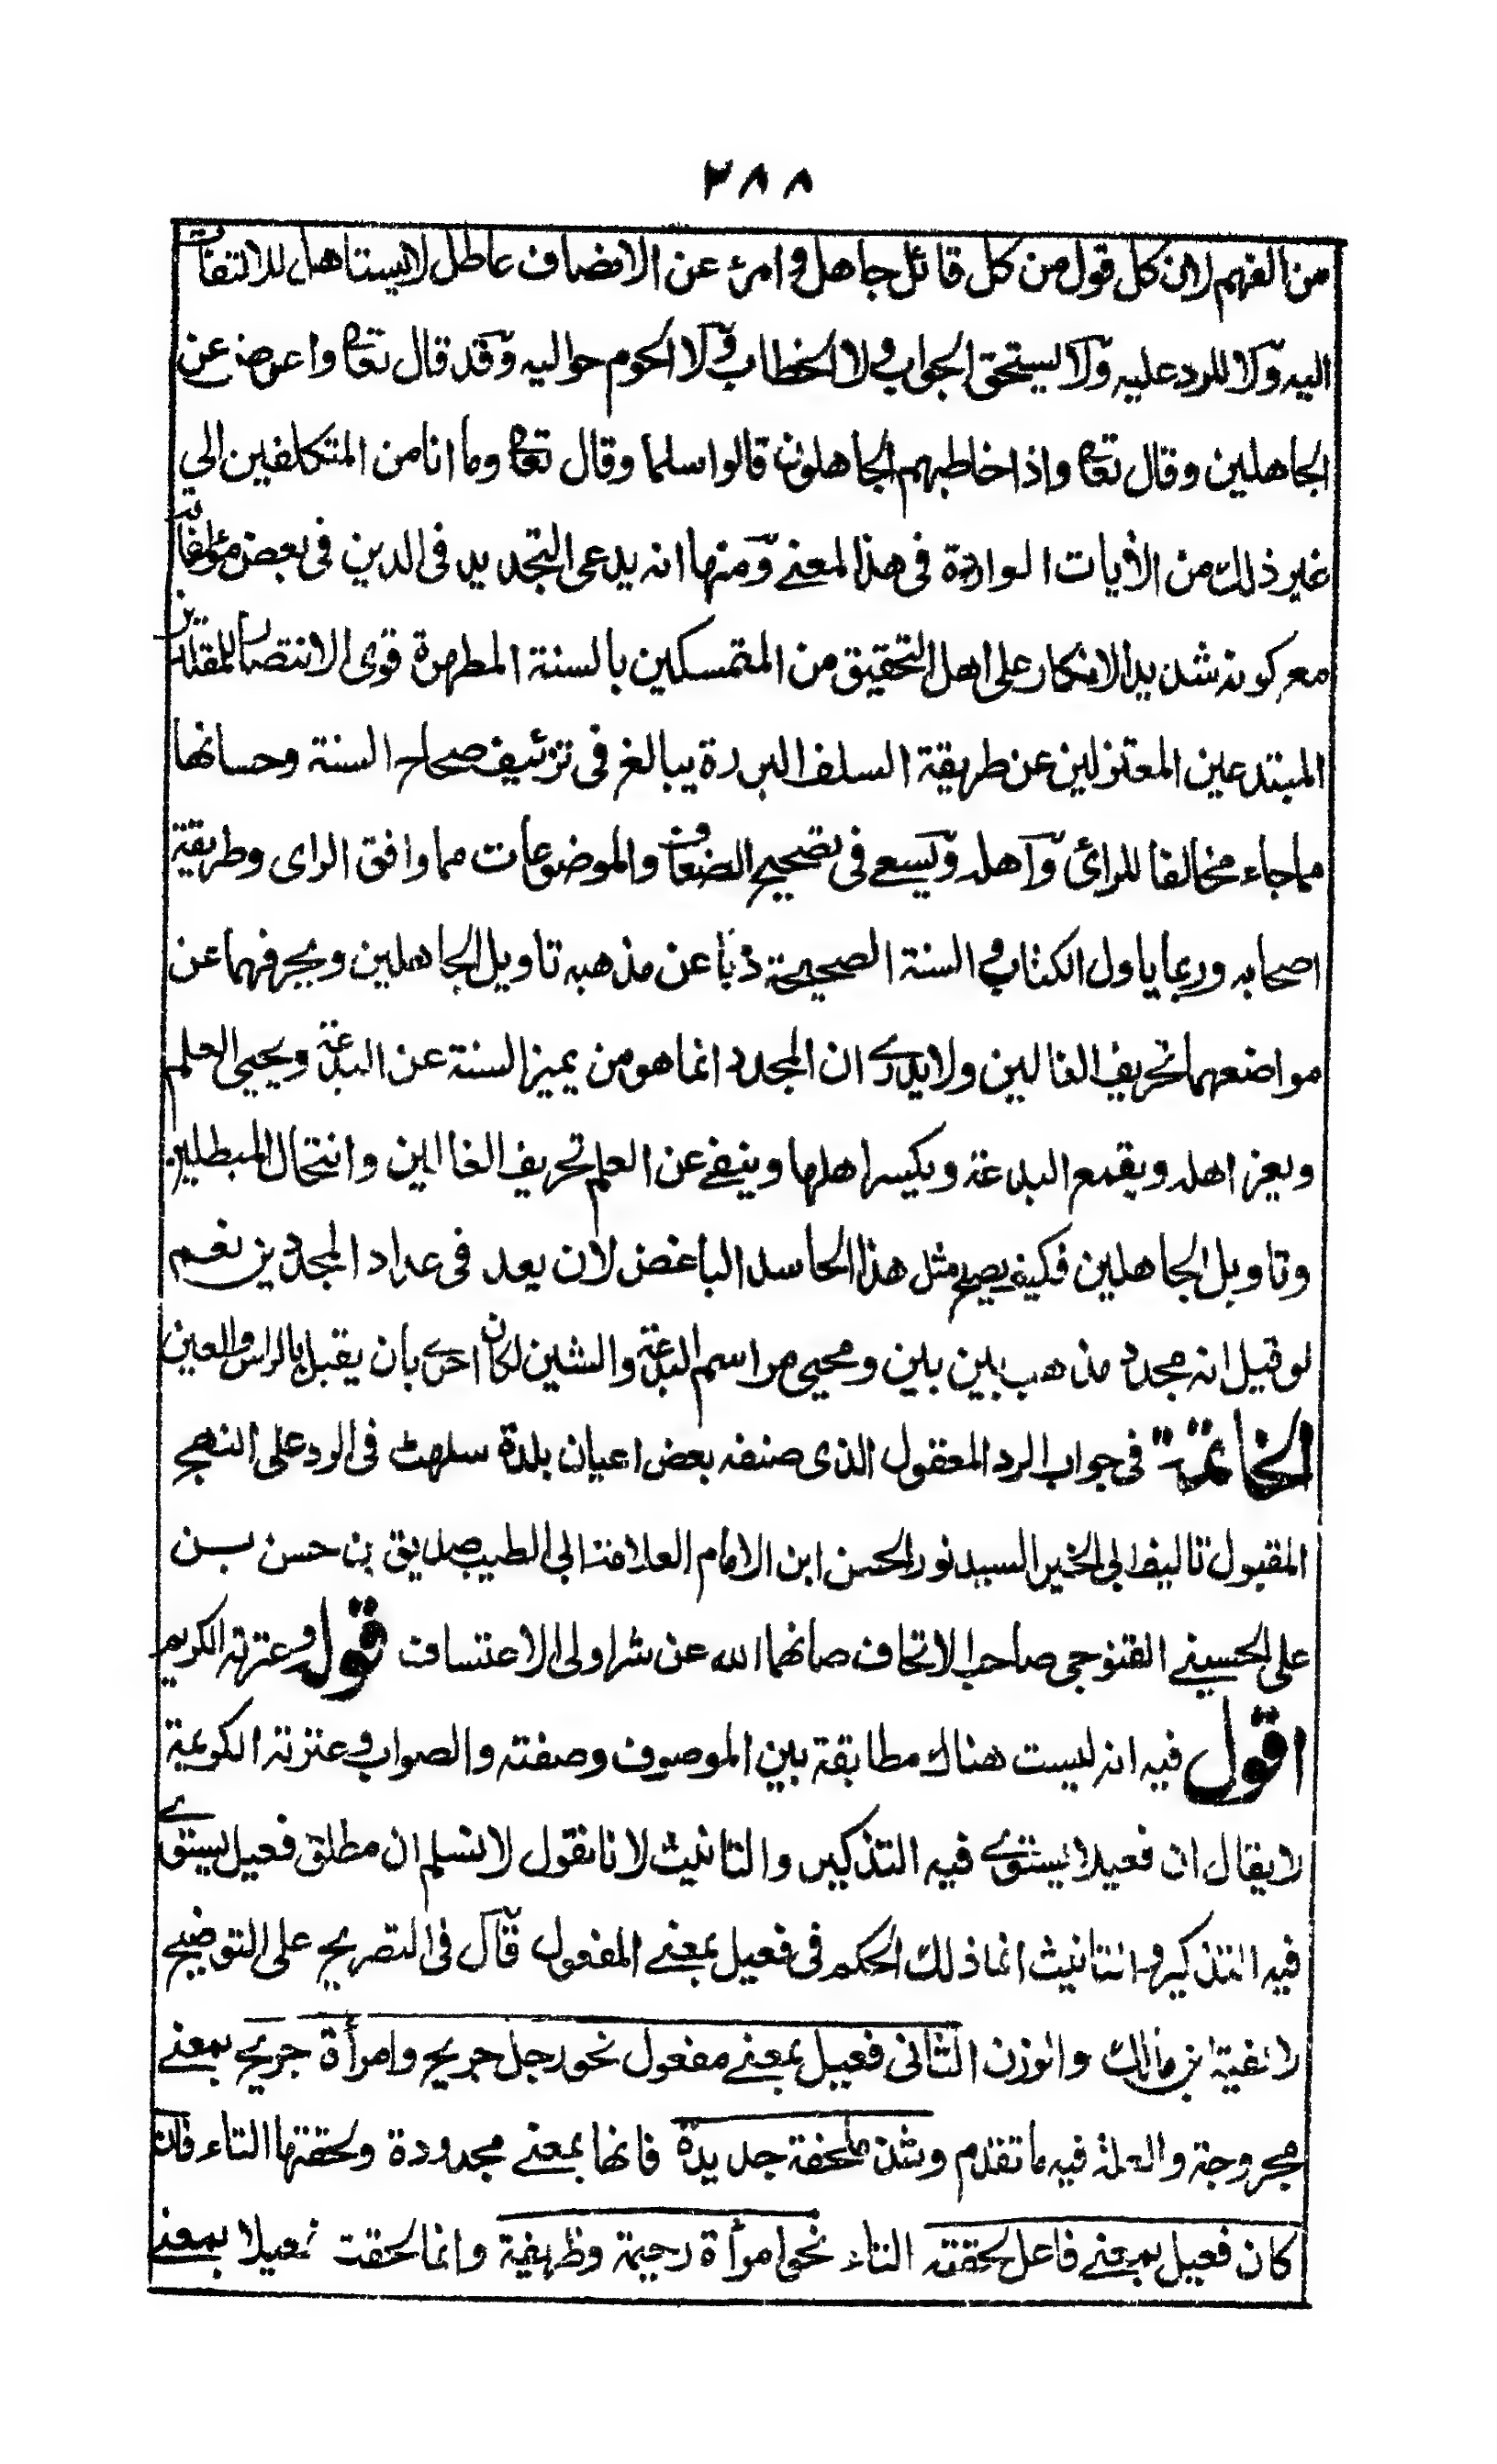 ٢٨٨
من الفهم لان كل قول من كل قائل جاهل وامرء عن الانصاف عاطل لايستاهل للالتفات
اليه ولا للرد عليه ولا يستحق الجواب ولا الخطاب ولا الحوم حواليه وقد قال تعا واعرض عن
الجاهلين وقال تعا واذا خاطبهم الجاهلون قالوا سلما وقال تعا وما انا من المتكلفين الى
غير ذلك من الأيات الواردة فى هذا المعنے ومنها انه يدعى التجديد فى الدين فى بعض مؤلفاته
مع كونه شديد الانكار على اهل التحقيق من المتمسكين بالسنة المطهرة قوى الانتصار للمقلدين
المبتدعين المعتزلين عن طريقة السلف البررة يبالغ فى تزئيف صحاح السنة وحسانها
مما جاء مخالفا للرائ وآهله ويسعے فى تصحيح الضعاف والموضوعات مما وافق الراى وطريقة
اصحابه وربما ياول الكتاب والسنة الصحيحة ذبا عن مذهبه تاويل الجاهلين ويحرفهما عن
مواضعهما تحريف الغالين ولايدرے ان المجدد انما هو من يميز السنة عن البدعة ويحيى العلم
ويعز اهله ويقمع البدعة ويكسر اهلها وينفے عن العلم تحريف الغالين وانتحال المبطلين
وتاويل الجاهلين فكيف يصح مثل هذا الحاسد الباغض لان يعد فى عداد المجددين نعم
لو قيل انه مجدد مذهب بين بين ومحيى مراسم البدعة والشين لكان احرے بان يقبل بالراس والعين
الخاتمة فى جواب الرد المعقول الذى صنفه بعض اعيان بلدة سلهٹ فى الرد على النهج
المقبول تاليف ابى الخير السيد نور الحسن ابن الامام العلامة ابى الطيب صديق بن حسن بن
على الحسينے القنوجى صاحب الاتحاف صانهما الله عن شر اولى الاعتساف قوله وعترته الكريم
اقول فيه انه ليست هناك مطابقة بين الموصوف وصفته والصواب وعترته الكريمة
لا يقال ان فعيلا يستوے فيه التذكير والتانيث لانا نقول لانسلم ان مطلق فعيل يستوے
فيه التذكير والتانيث انما ذلك الحكم فى فعيل بمعنے المفعول قال فى التصريح على التوضيح
لالفية ابن مالك والوزن الثانى فعيل بمعنے مفعول نحو رجل جريح وامرأة جريح بمعنے
مجروحة والعلة فيه ما تقدم وشذ ملحفة جديدة فانها بمعنے مجدودة ولحقتها التاء فان
كان فعيل بمعنے فاعل لحقته التاء نحو امرأة رحيمة وظريفة وانما لحقت فعيلا بمعنے